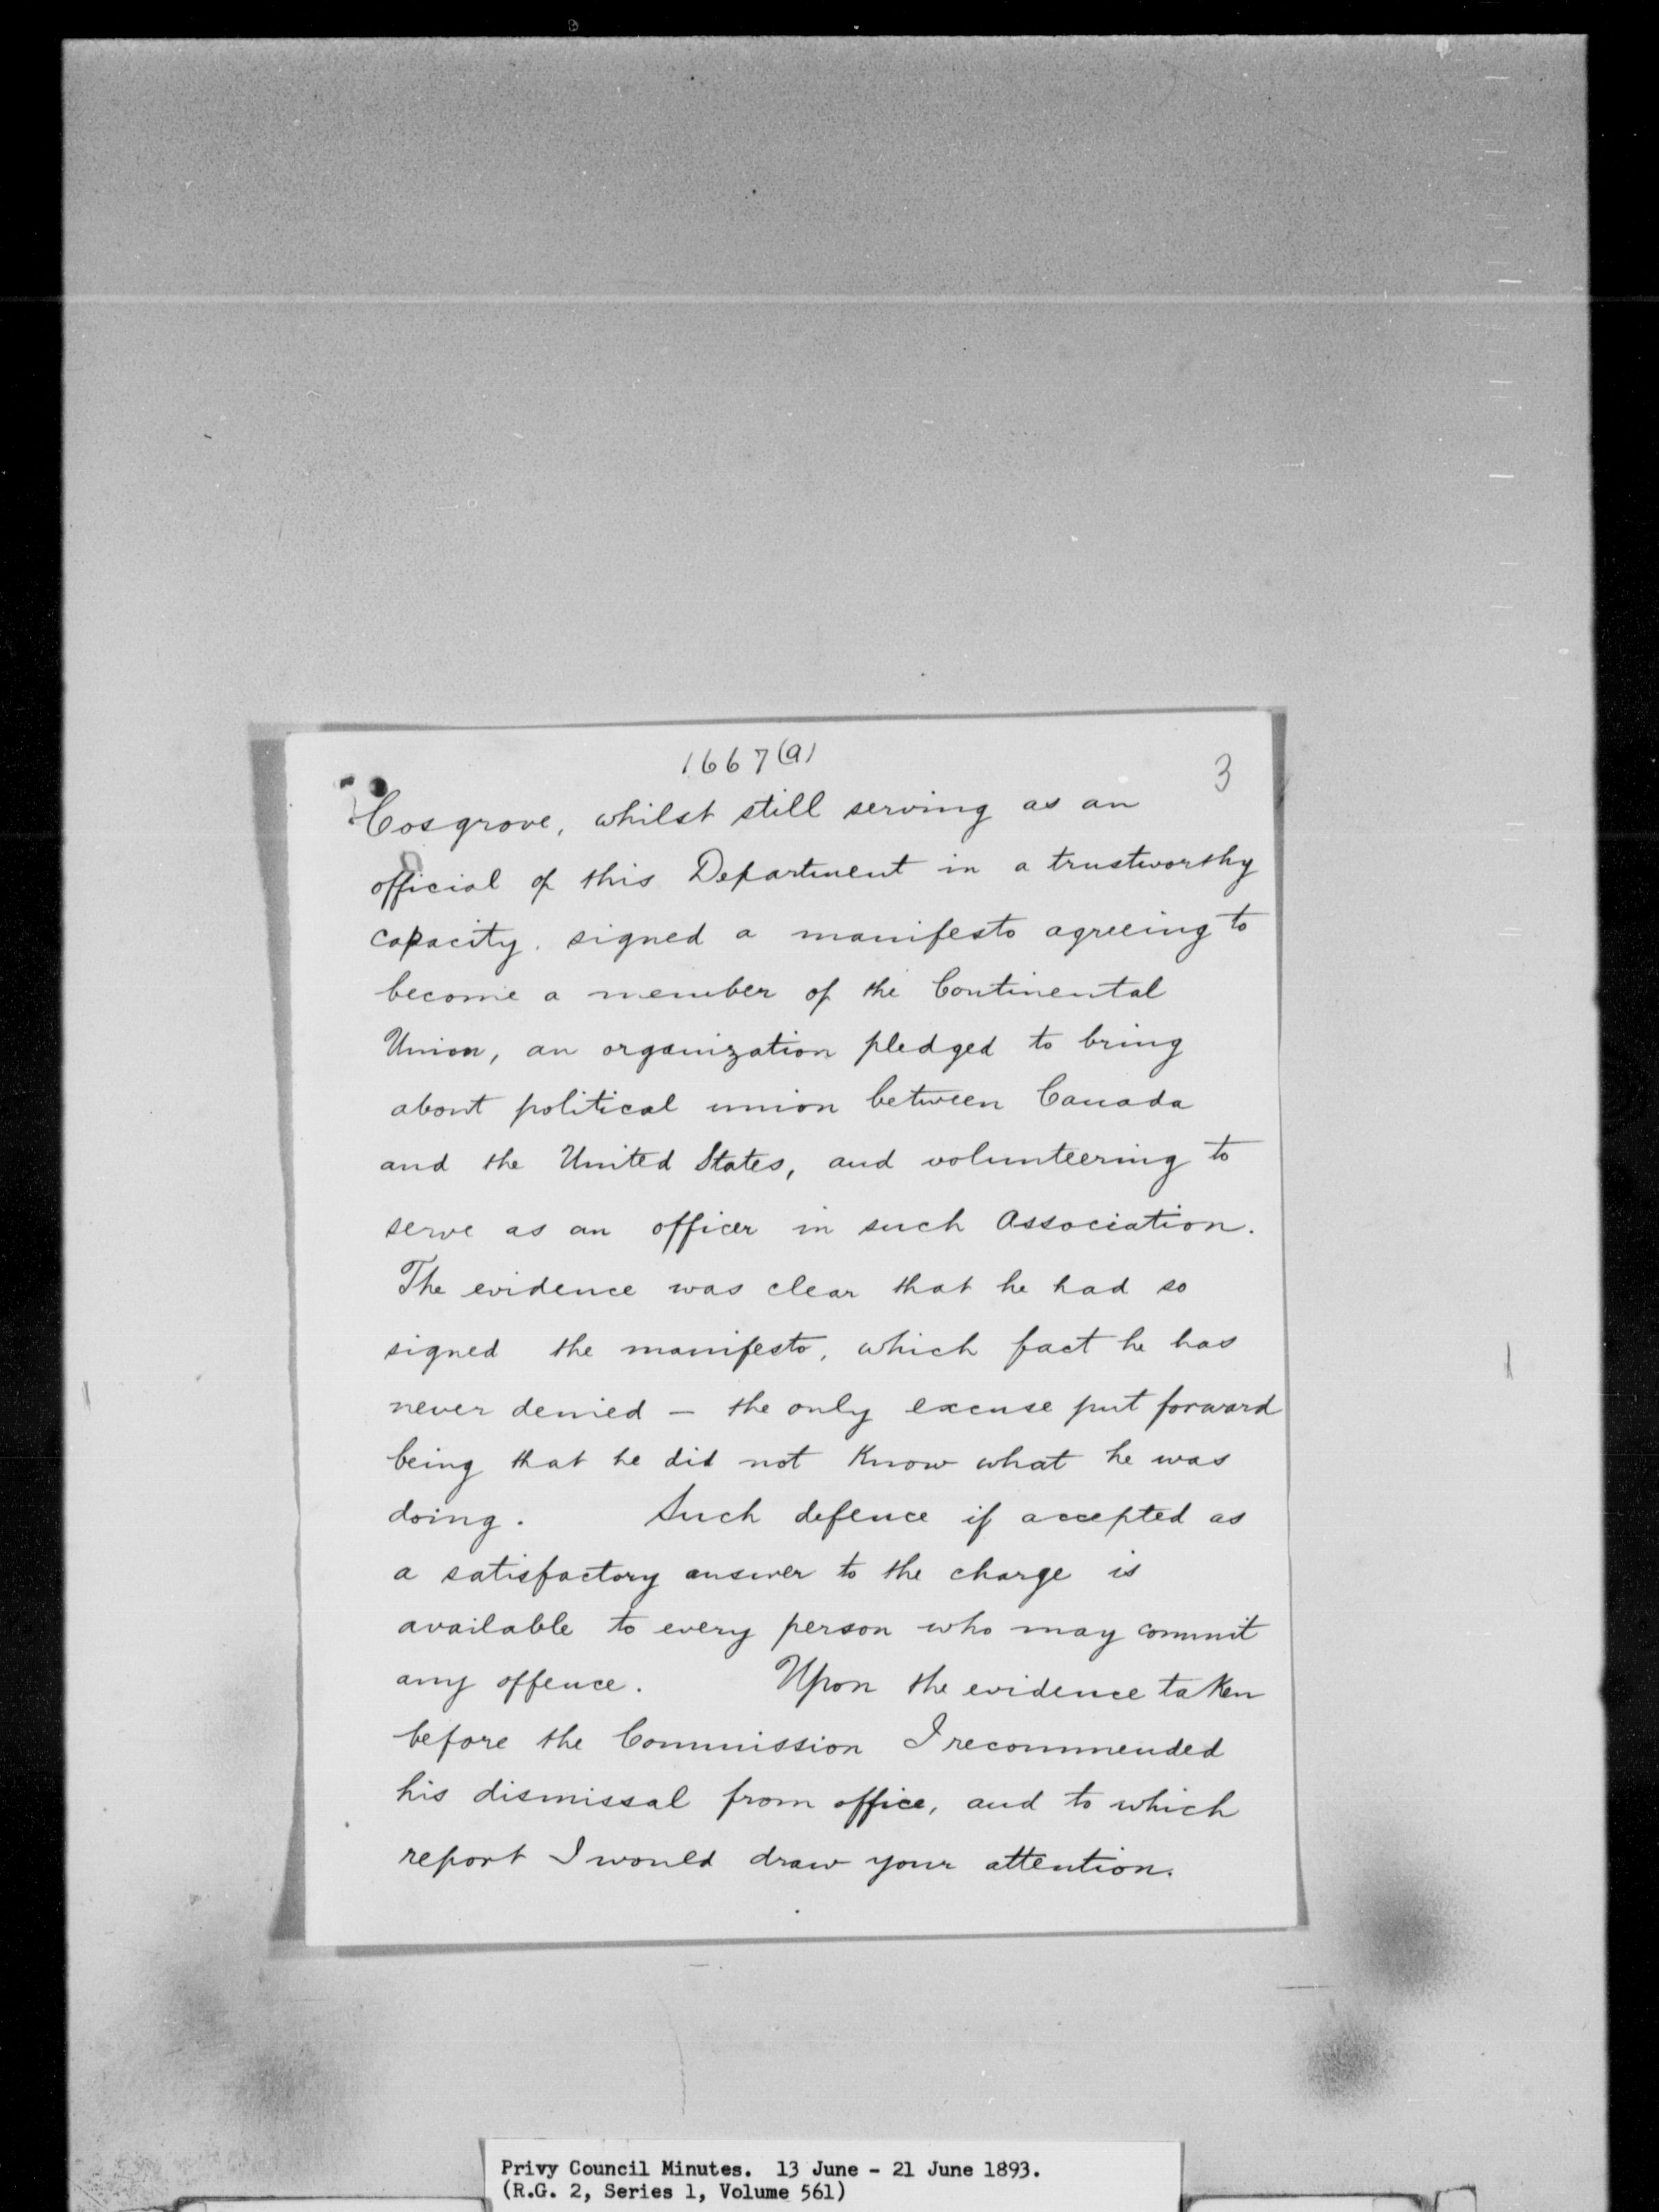 1667(a)
3
Cosgrove, whilst still serving as an
official of this Department in a trustworthy
capacity, signed a manifesto agreeing to
become a member of the Continental
Union, an organization pledged to bring
about political union between Canada
and the United States, and volunteering to
serve as an officer in such Association.
The evidence was clear that he had so
signed the manifesto, which fact he has
never denied – the only excuse put forward
being that he did not know what he was
doing. Such defence if accepted as
a satisfactory answer to the charge is
available to every person who may commit
any offence. Upon the evidence taken
before the Commission I recommended
his dismissal from office, and to which
report I would draw your attention.
Privy Council Minutes. 13 June - 21 June 1893.
(R.G. 2, Series 1, Volume 561)